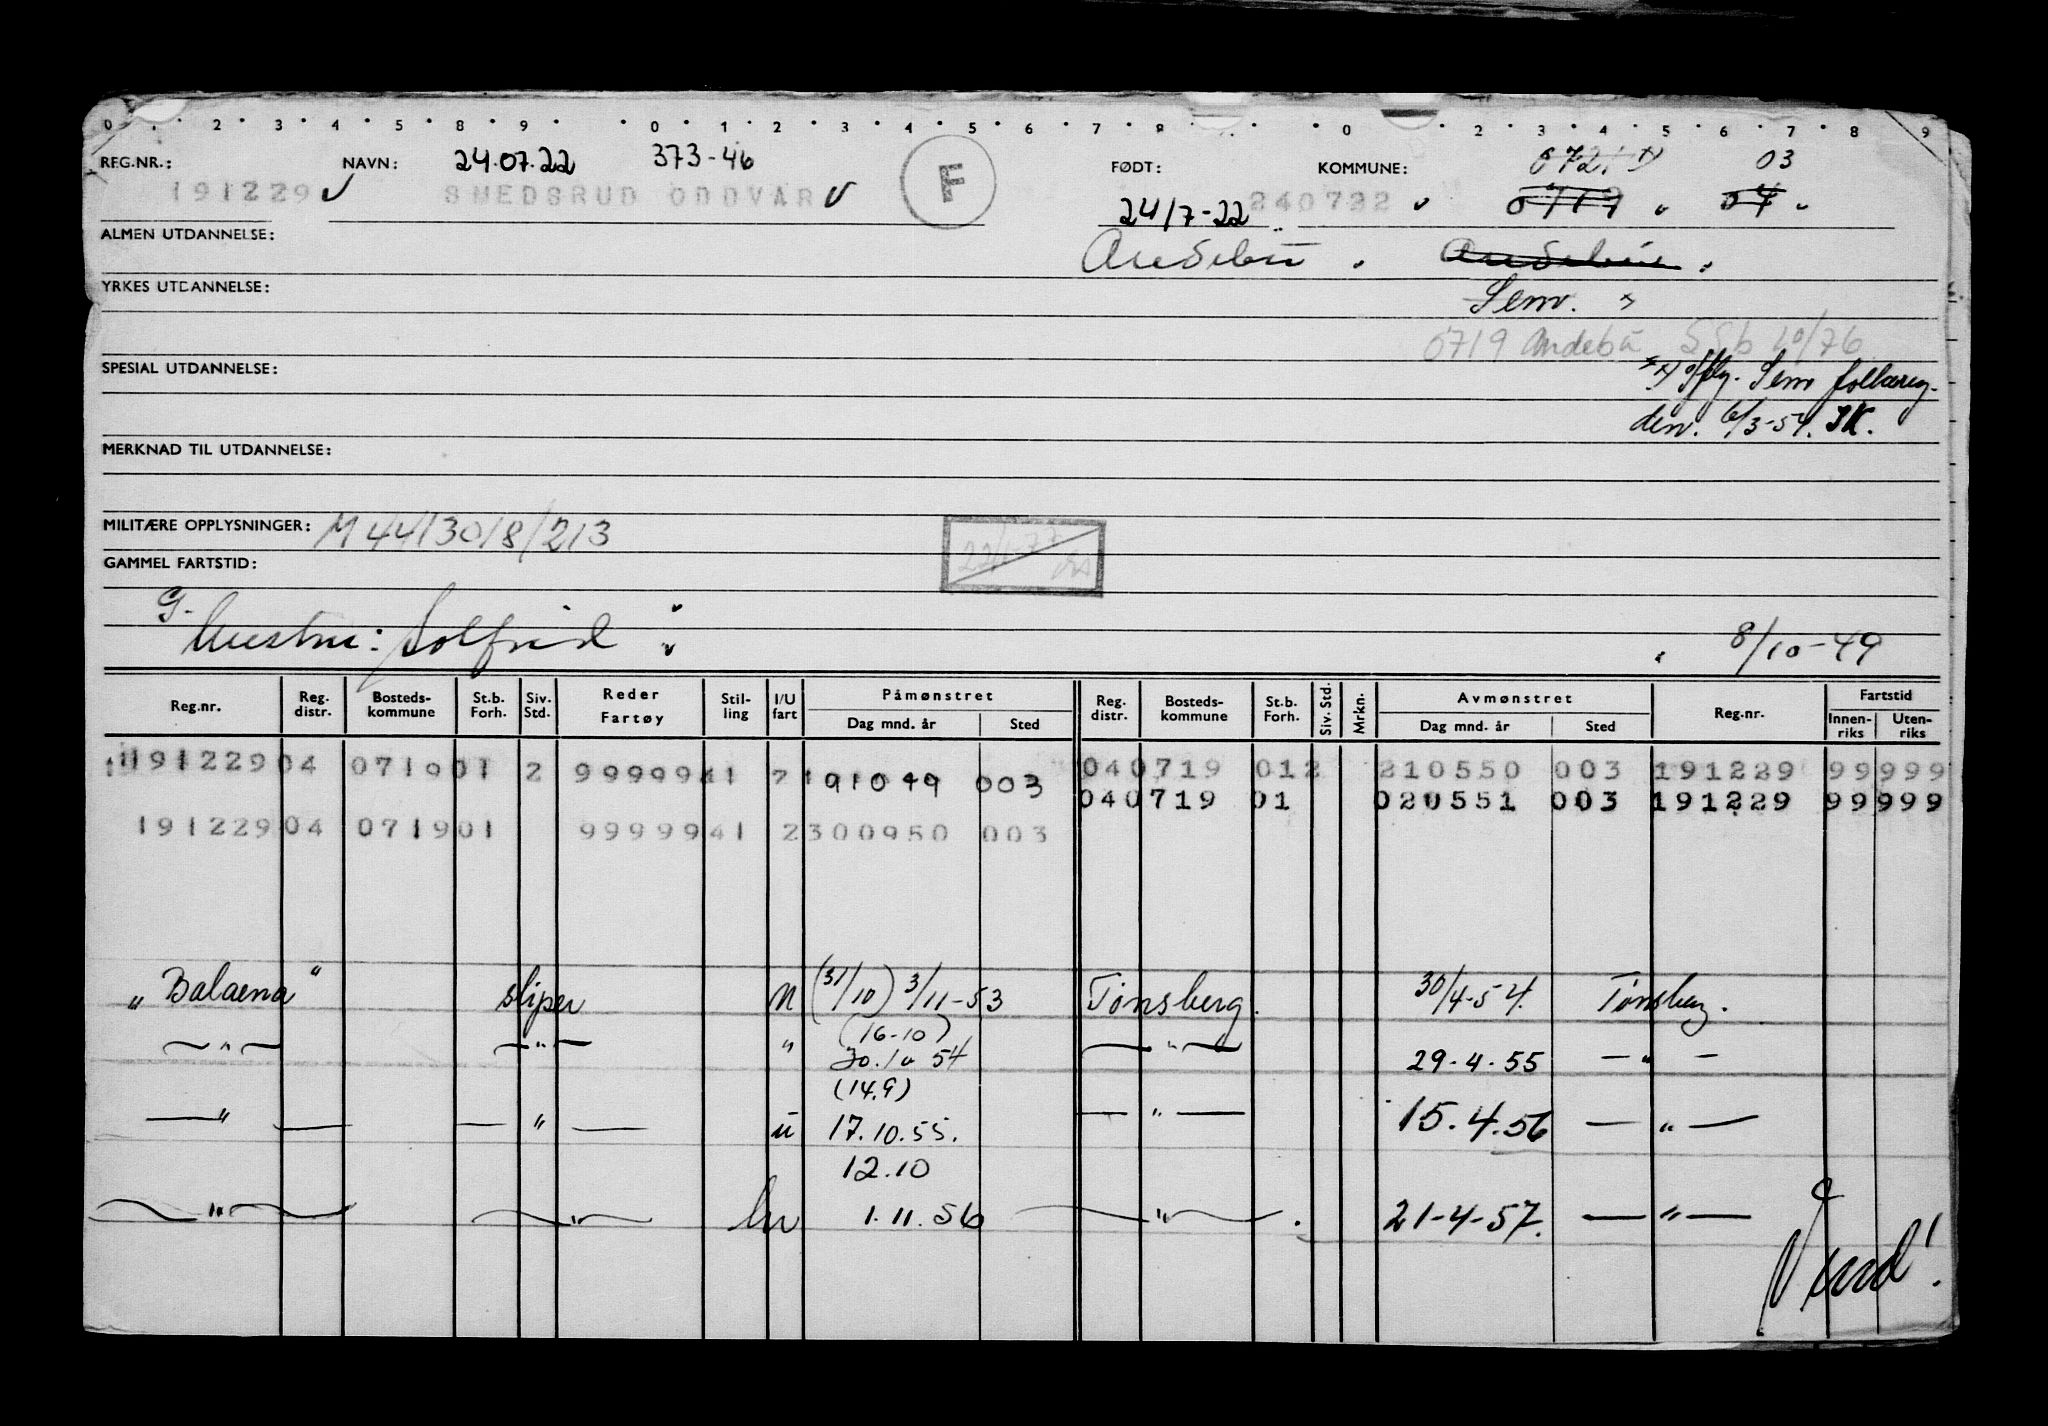 0 2 3 4 5 8 9 0 1 2 3 4 5 6 7 8 0 2 3 4 5 6 7 8 9
REG.NR.: NAVN: 24.07.22 373-46 FØDT: KOMMUNE: 0721 x) 03
191229 SMEDSRUD ODDVAR F 24/7-22 240722 0719 04
ALMEN UTDANNELSE: Andebu Andebu
YRKES UTDANNELSE: Sem. x
0719 Andebu SSb 10/76
SPESIAL UTDANNELSE: x) oppg. Sem folkereg.
den. 6/3-54. JK.
MERKNAD TIL UTDANNELSE:
MILITÆRE OPPLYSNINGER: M 44/30/8/213 22/1-77
GAMMEL FARTSTID:
G.
Hustru: Solfrid 8/10-49
Reg.nr. Reg. distr. Bosteds- kommune St.b. Forh. Siv. Std. Reder Fartøy Stil- ling I/U fart Påmønstret Dag mnd. år Sted Reg. distr. Bosteds- kommune St.b. Forh. Siv. Std. Mrkn. Avmønstret Dag mnd. år Sted Reg.nr. Fartstid Innen- riks Uten- riks
191229 04 0719 01 2 99999 41 2 191049 003 04 0719 01 2 210550 003 191229 99 999
04 0719 01 020551 003 191229 99 999
191229 04 0719 01 99999 41 2 300950 003
„Balaena" sliper u (31/10) 3/11-53 Tønsberg. 30/4-54. Tønsberg.
(16-10)
— " — — " — " 30.10 54 — " — 29-4-55 — " —
(14.9)
— " — — " — u 17.10.55. — " — 15.4.56 — " —
12.10
— " — — " — 1.11.56 — " — 21-4-57. — " —